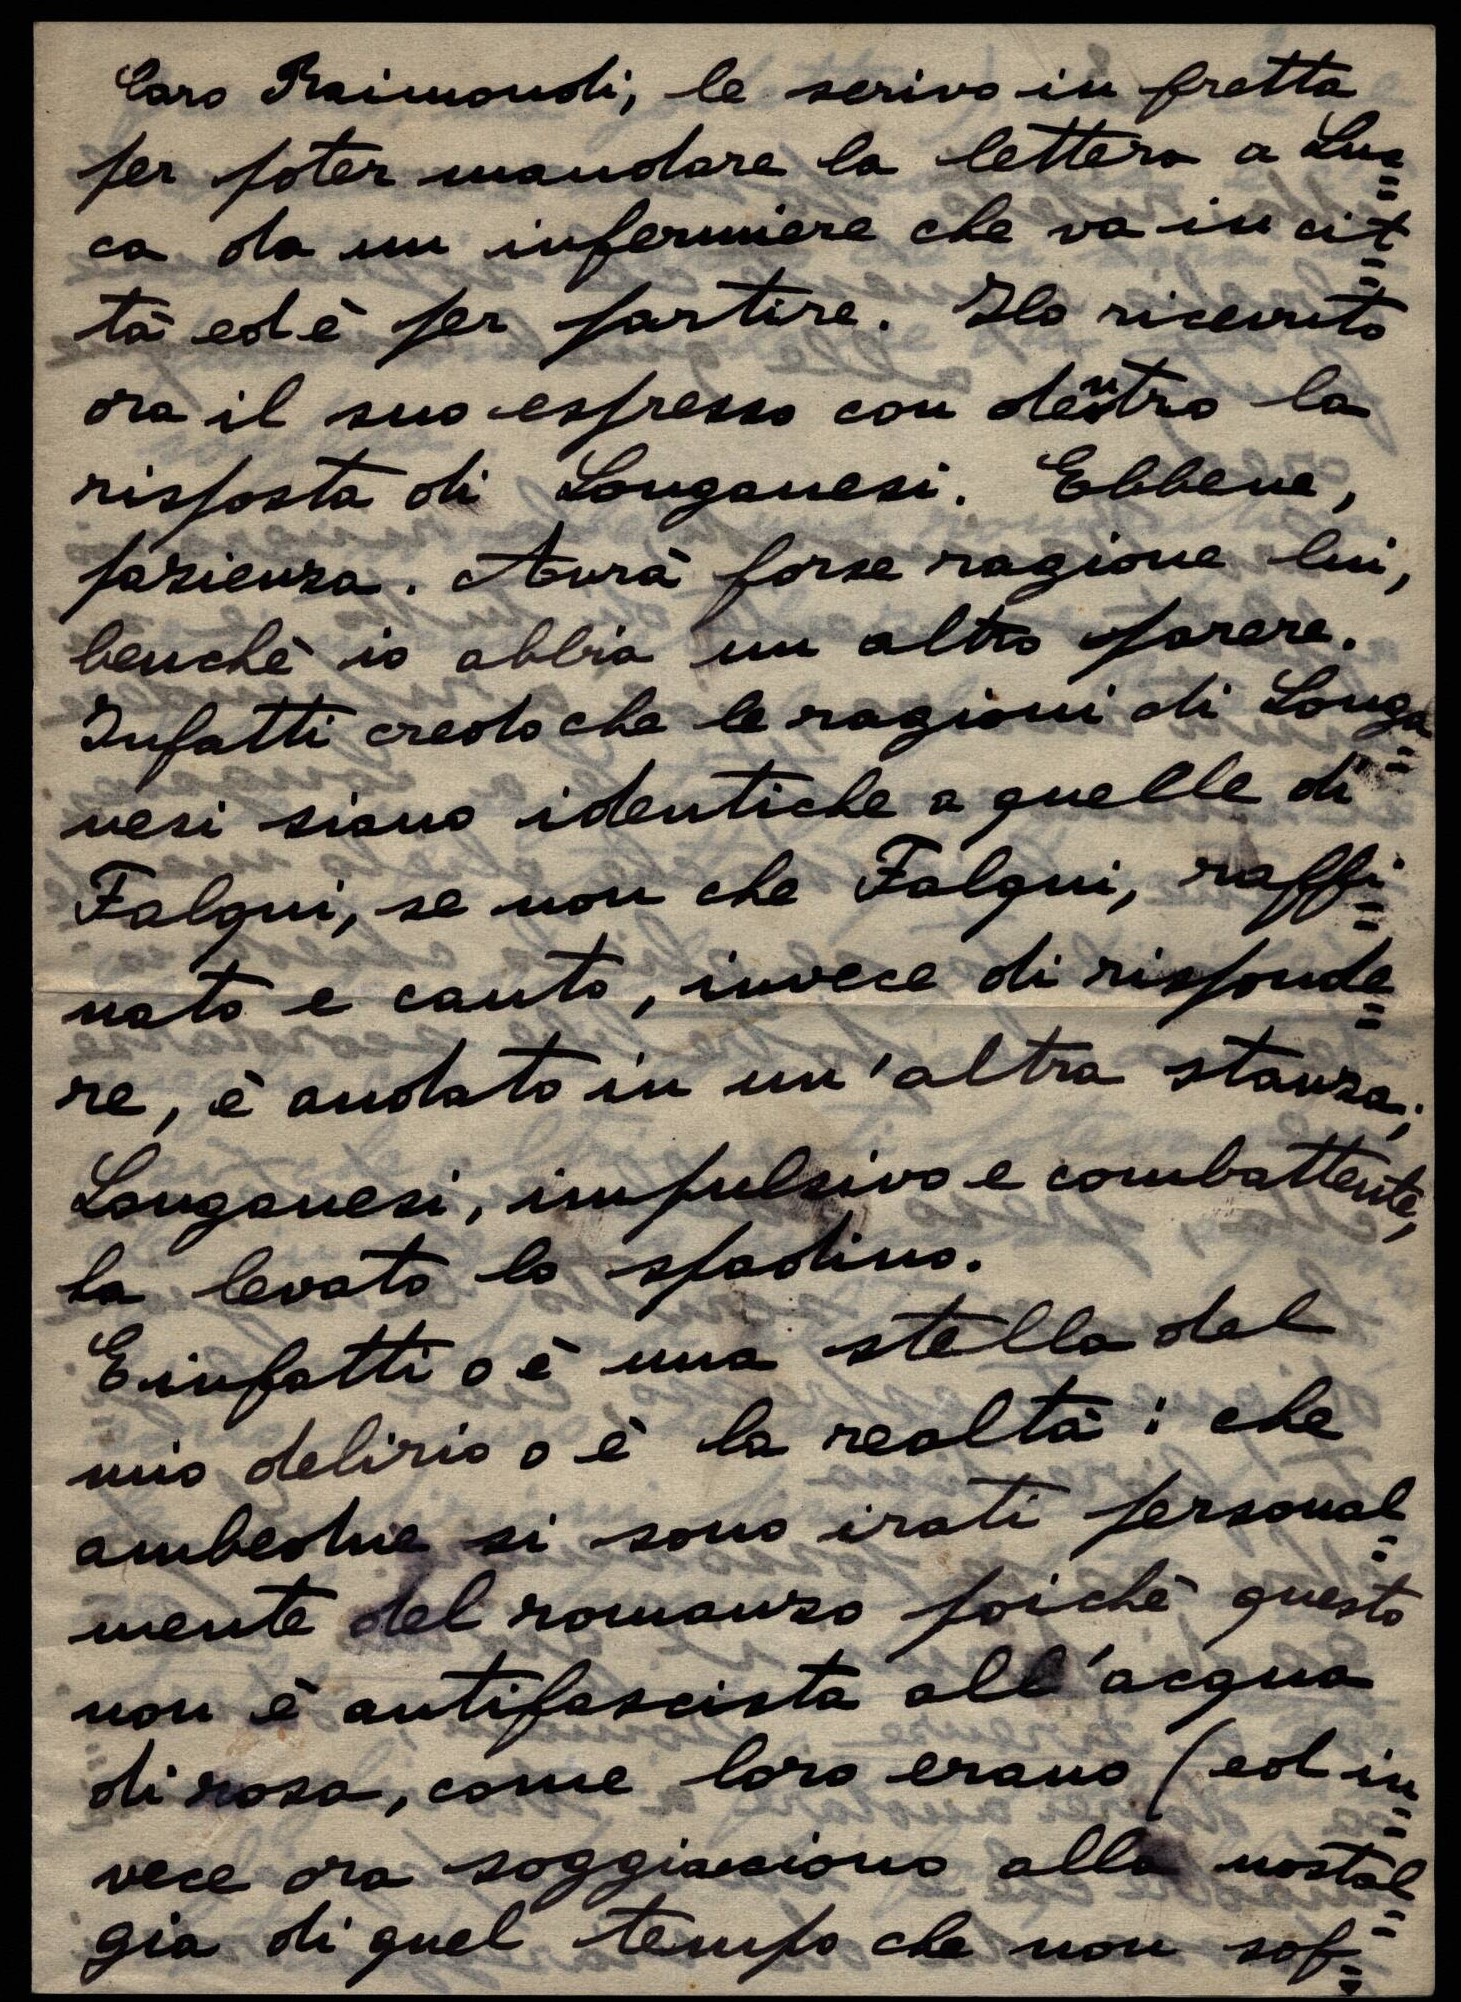 Caro Raimondi, le scrivo in fretta
per poter mandare la lettera a Luc=
ca da un infermiere che va in cit=
tà ed è per partire. Ho ricevuto
ora il suo espresso con dentro la
risposta di Longanesi. Ebbene,
pazienza. Avrà forse ragione lui,
benchè io abbia un altro parere.
Infatti credo che le ragioni di Longa=
nesi siano identiche a quelle di
Falqui, se non che Falqui, raffi=
nato e cauto, invece di risponde=
re, è andato in un'altra stanza;
Longanesi, impulsivo e combattente,
ha levato lo spadino.
E infatti o è una stella del
mio delirio o è la realtà: che
ambedue si sono irati personal=
mente del romanzo poichè questo
non è antifascista all'acqua
di rosa, come loro erano (ed in=
vece ora soggiacciono alla nostal=
gia di quel tempo che non sof=